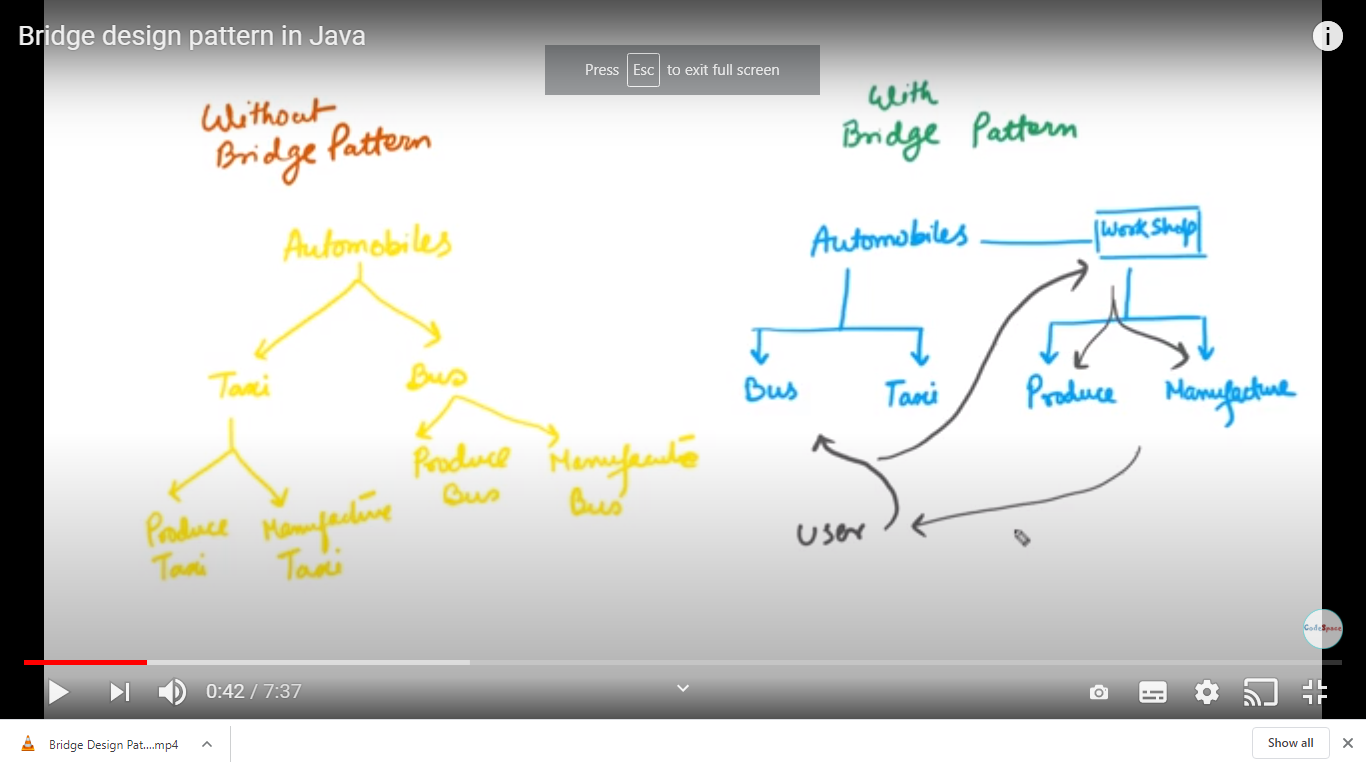 Bridge design pattern in Java
Press Esc to exit full screen
Without
Bridge Pattern
With
Bridge Pattern
Automobiles
Taxi
Bus
Produce
Bus
Manufacture
Bus
Produce
Taxi
Manufacture
Taxi
Automobiles
WorkShop
Bus
Taxi
Produce
Manufacture
User
CodeSpace
0:42 / 7:37
Bridge Design Pat....mp4
Show all